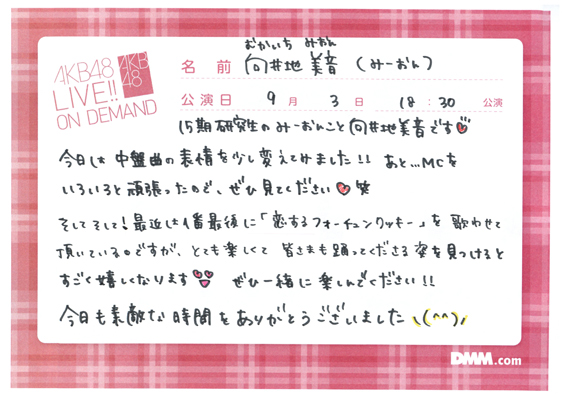 AKB48
LIVE!!
ON DEMAND
AKB
48
むかいち みおん
名 前 向井地 美音 (みーおん)
公演日 9月 3日 18:30 公演
15期研究生のみーおんこと向井地美音です
今日は中盤曲の表情を少し変えてみました!! あと…MCを
いろいろと頑張ったので、ぜひ見てください 笑
そしてそして!最近は1番最後に「恋するフォーチュンクッキー」を歌わせて
頂いているのですが、とても楽しくて 皆さまも踊ってくださる姿を見つけると
すごく嬉しくなります ぜひ一緒に楽しんでください!!
今日も素敵な時間をありがとうございました \(^^)/
DMM.com